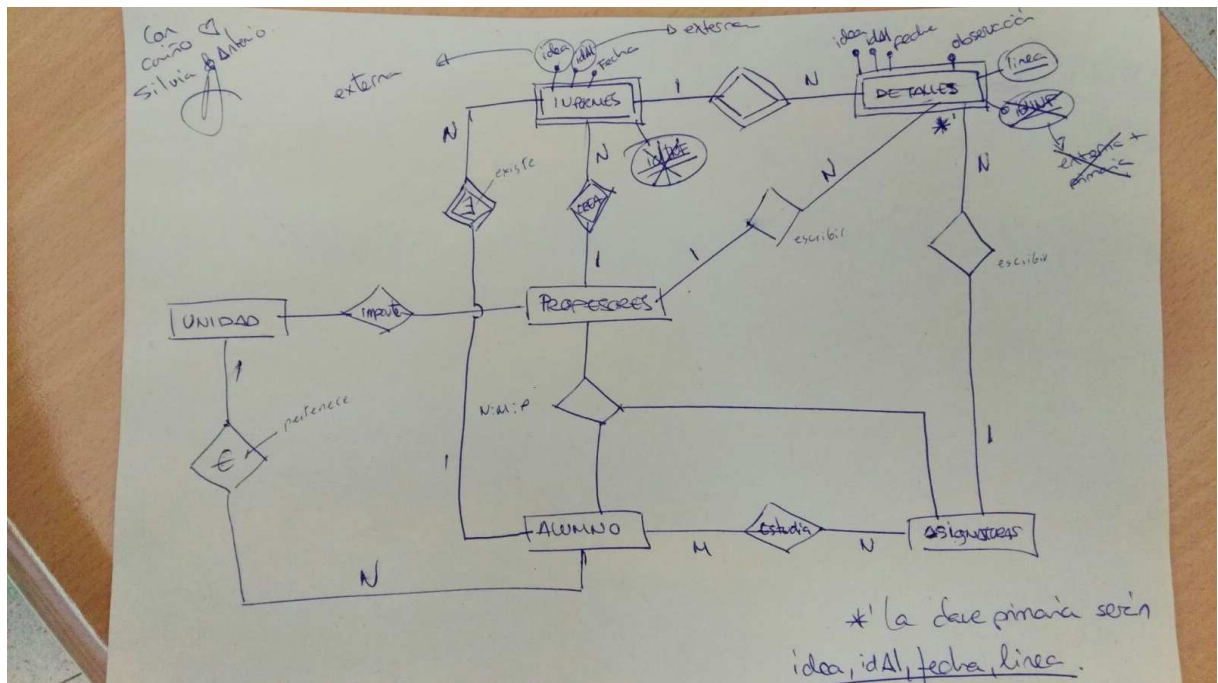 Con
cariño
Silvia & Antonio
externa
idea
idAl
Fecha
externa
INFORMES
1
N
idea
idAl
fecha
observación
línea
DETALLES
*'
externa +
primaria
N
existe
N
CREA
1
N
escribir
1
N
escribir
1
UNIDAD
imparte
PROFESORES
1
pertenece
€
N
N:M:P
1
ALUMNO
M
Estudia
N
ASIGNATURAS
*' La clave primaria serán
idea, idAl, fecha, línea.